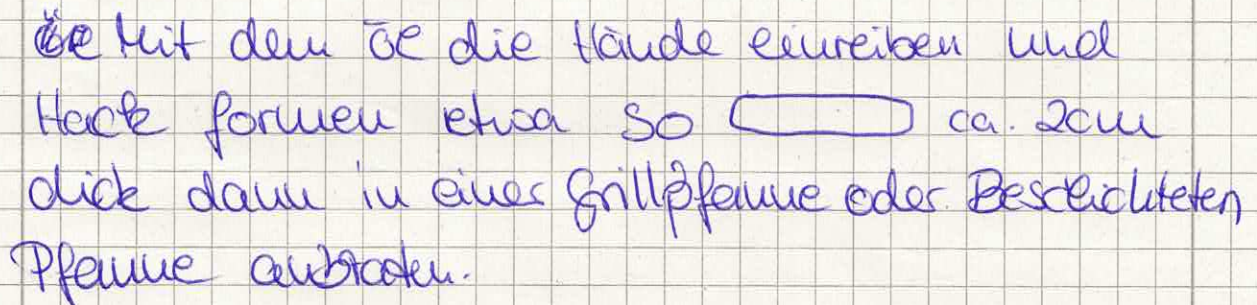 Mit dem Öl die Hände einreiben und
Hack formen etwa so ca. 2cm
dick dann in einer Grillpfanne oder Beschichteten
Pfanne anbraten.